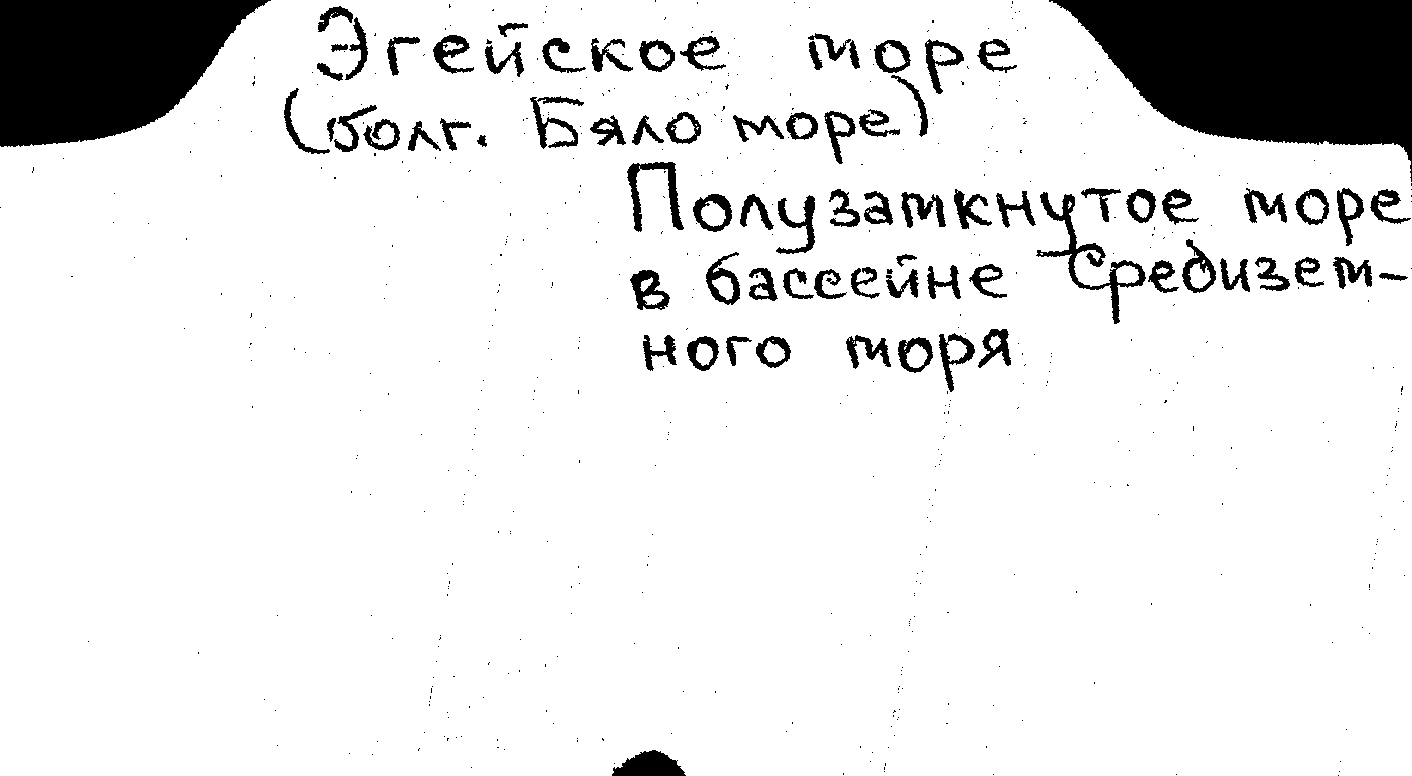 Эгейское море
(болг. Бяло море)
Полузамкнутое море
в бассейне Средизем-
ного моря